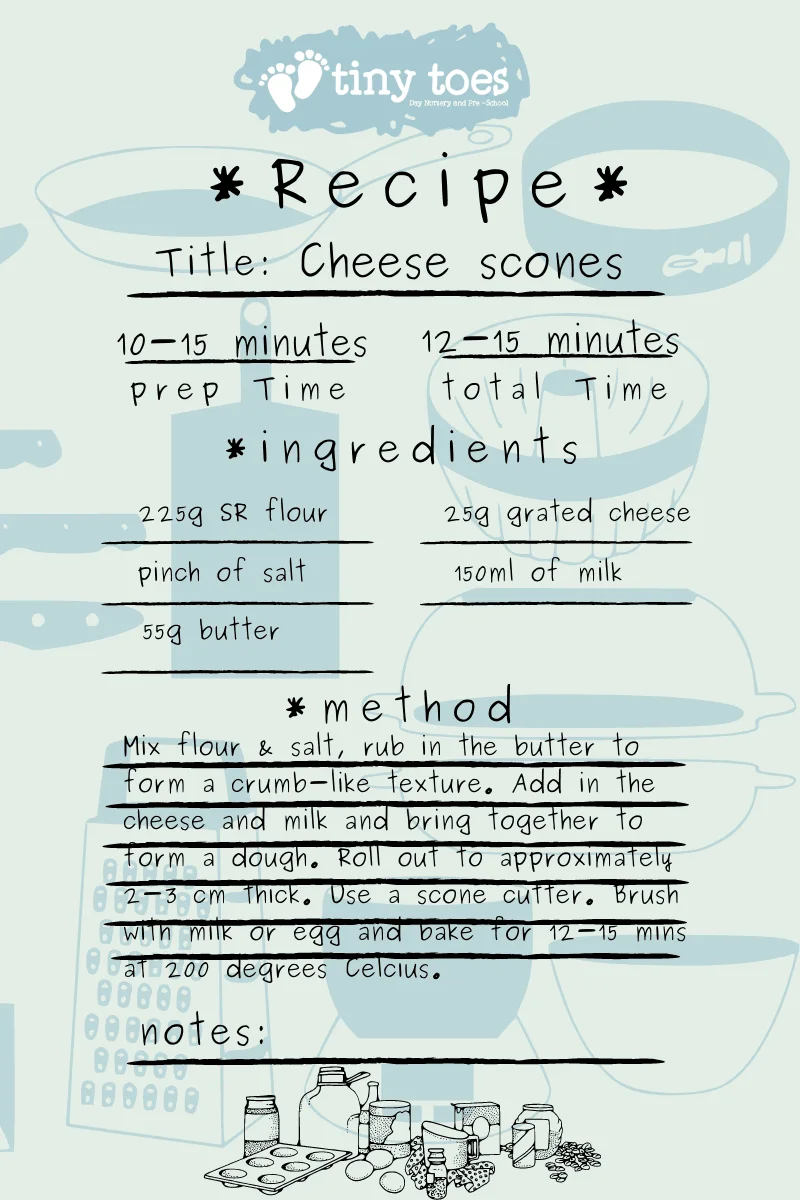 tiny toes
Day Nursery and Pre-School
*Recipe*
Title: Cheese scones
10-15 minutes
prep Time
12-15 minutes
total Time
*ingredients
225g SR flour
pinch of salt
55g butter
25g grated cheese
150ml of milk
*method
Mix flour & salt, rub in the butter to
form a crumb-like texture. Add in the
cheese and milk and bring together to
form a dough. Roll out to approximately
2-3 cm thick. Use a scone cutter. Brush
with milk or egg and bake for 12-15 mins
at 200 degrees Celcius.
notes: